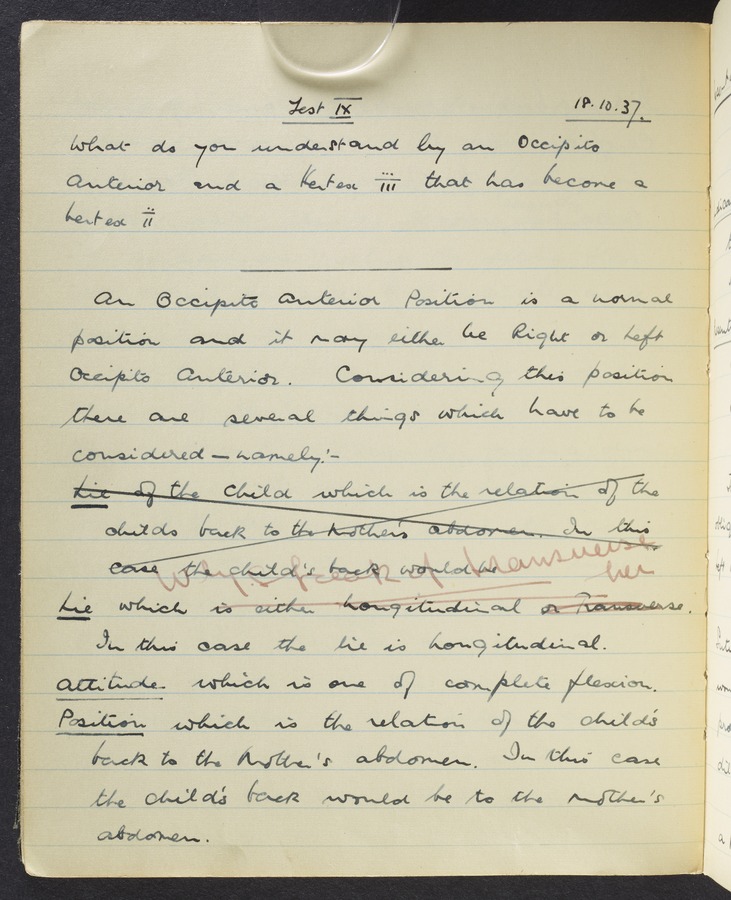 Test IX
18.10.37.
What do you understand by an Occipito
Anterior and a Vertex III that has become a
Vertex II
An Occipito Anterior Position is a normal
position and it may either be Right or Left
Occipito Anterior. Considering this position
there are several things which have to be
considered – namely:-
Lie of the Child which is the relation of the
childs back to the Mother's abdomen. In this
case the child's back would be
Why speak of transverse
her
Lie which is either Longitudinal or Transverse.
In this case the lie is Longitudinal.
Attitude which is one of complete flexion.
Position which is the relation of the child's
back to the Mother's abdomen. In this case
the child's back would be to the mother's
abdomen.